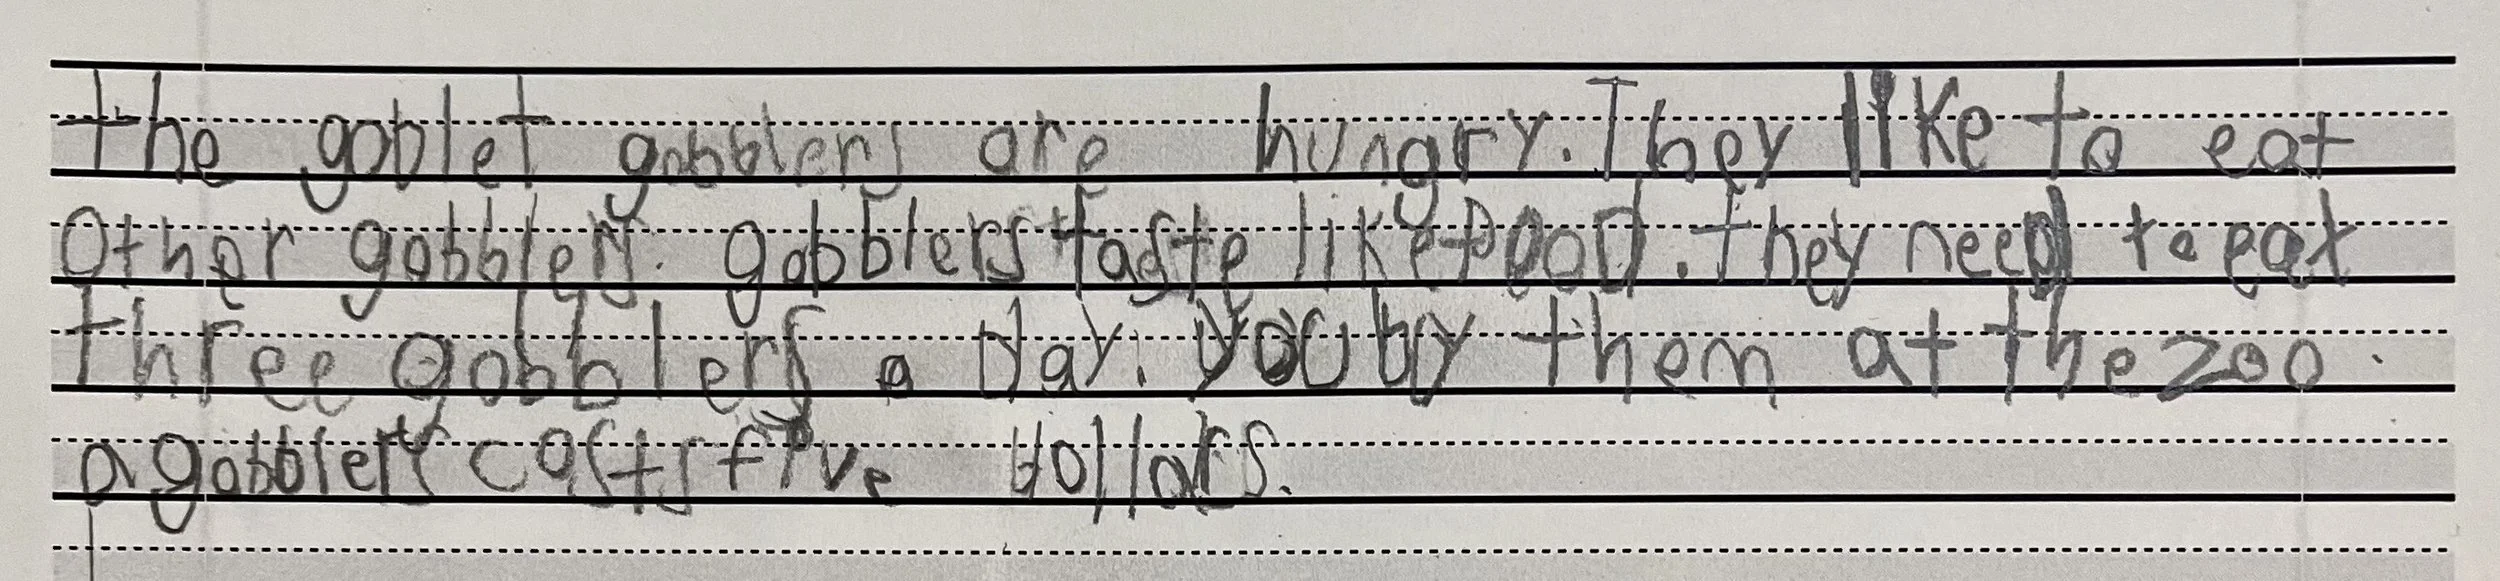 the goblet gobblers are hungry. They like to eat
Other gobblers. gobblers taste like food. They need to eat
three gobblers a day. you by them at the zoo.
a gobblers costs five dollars.